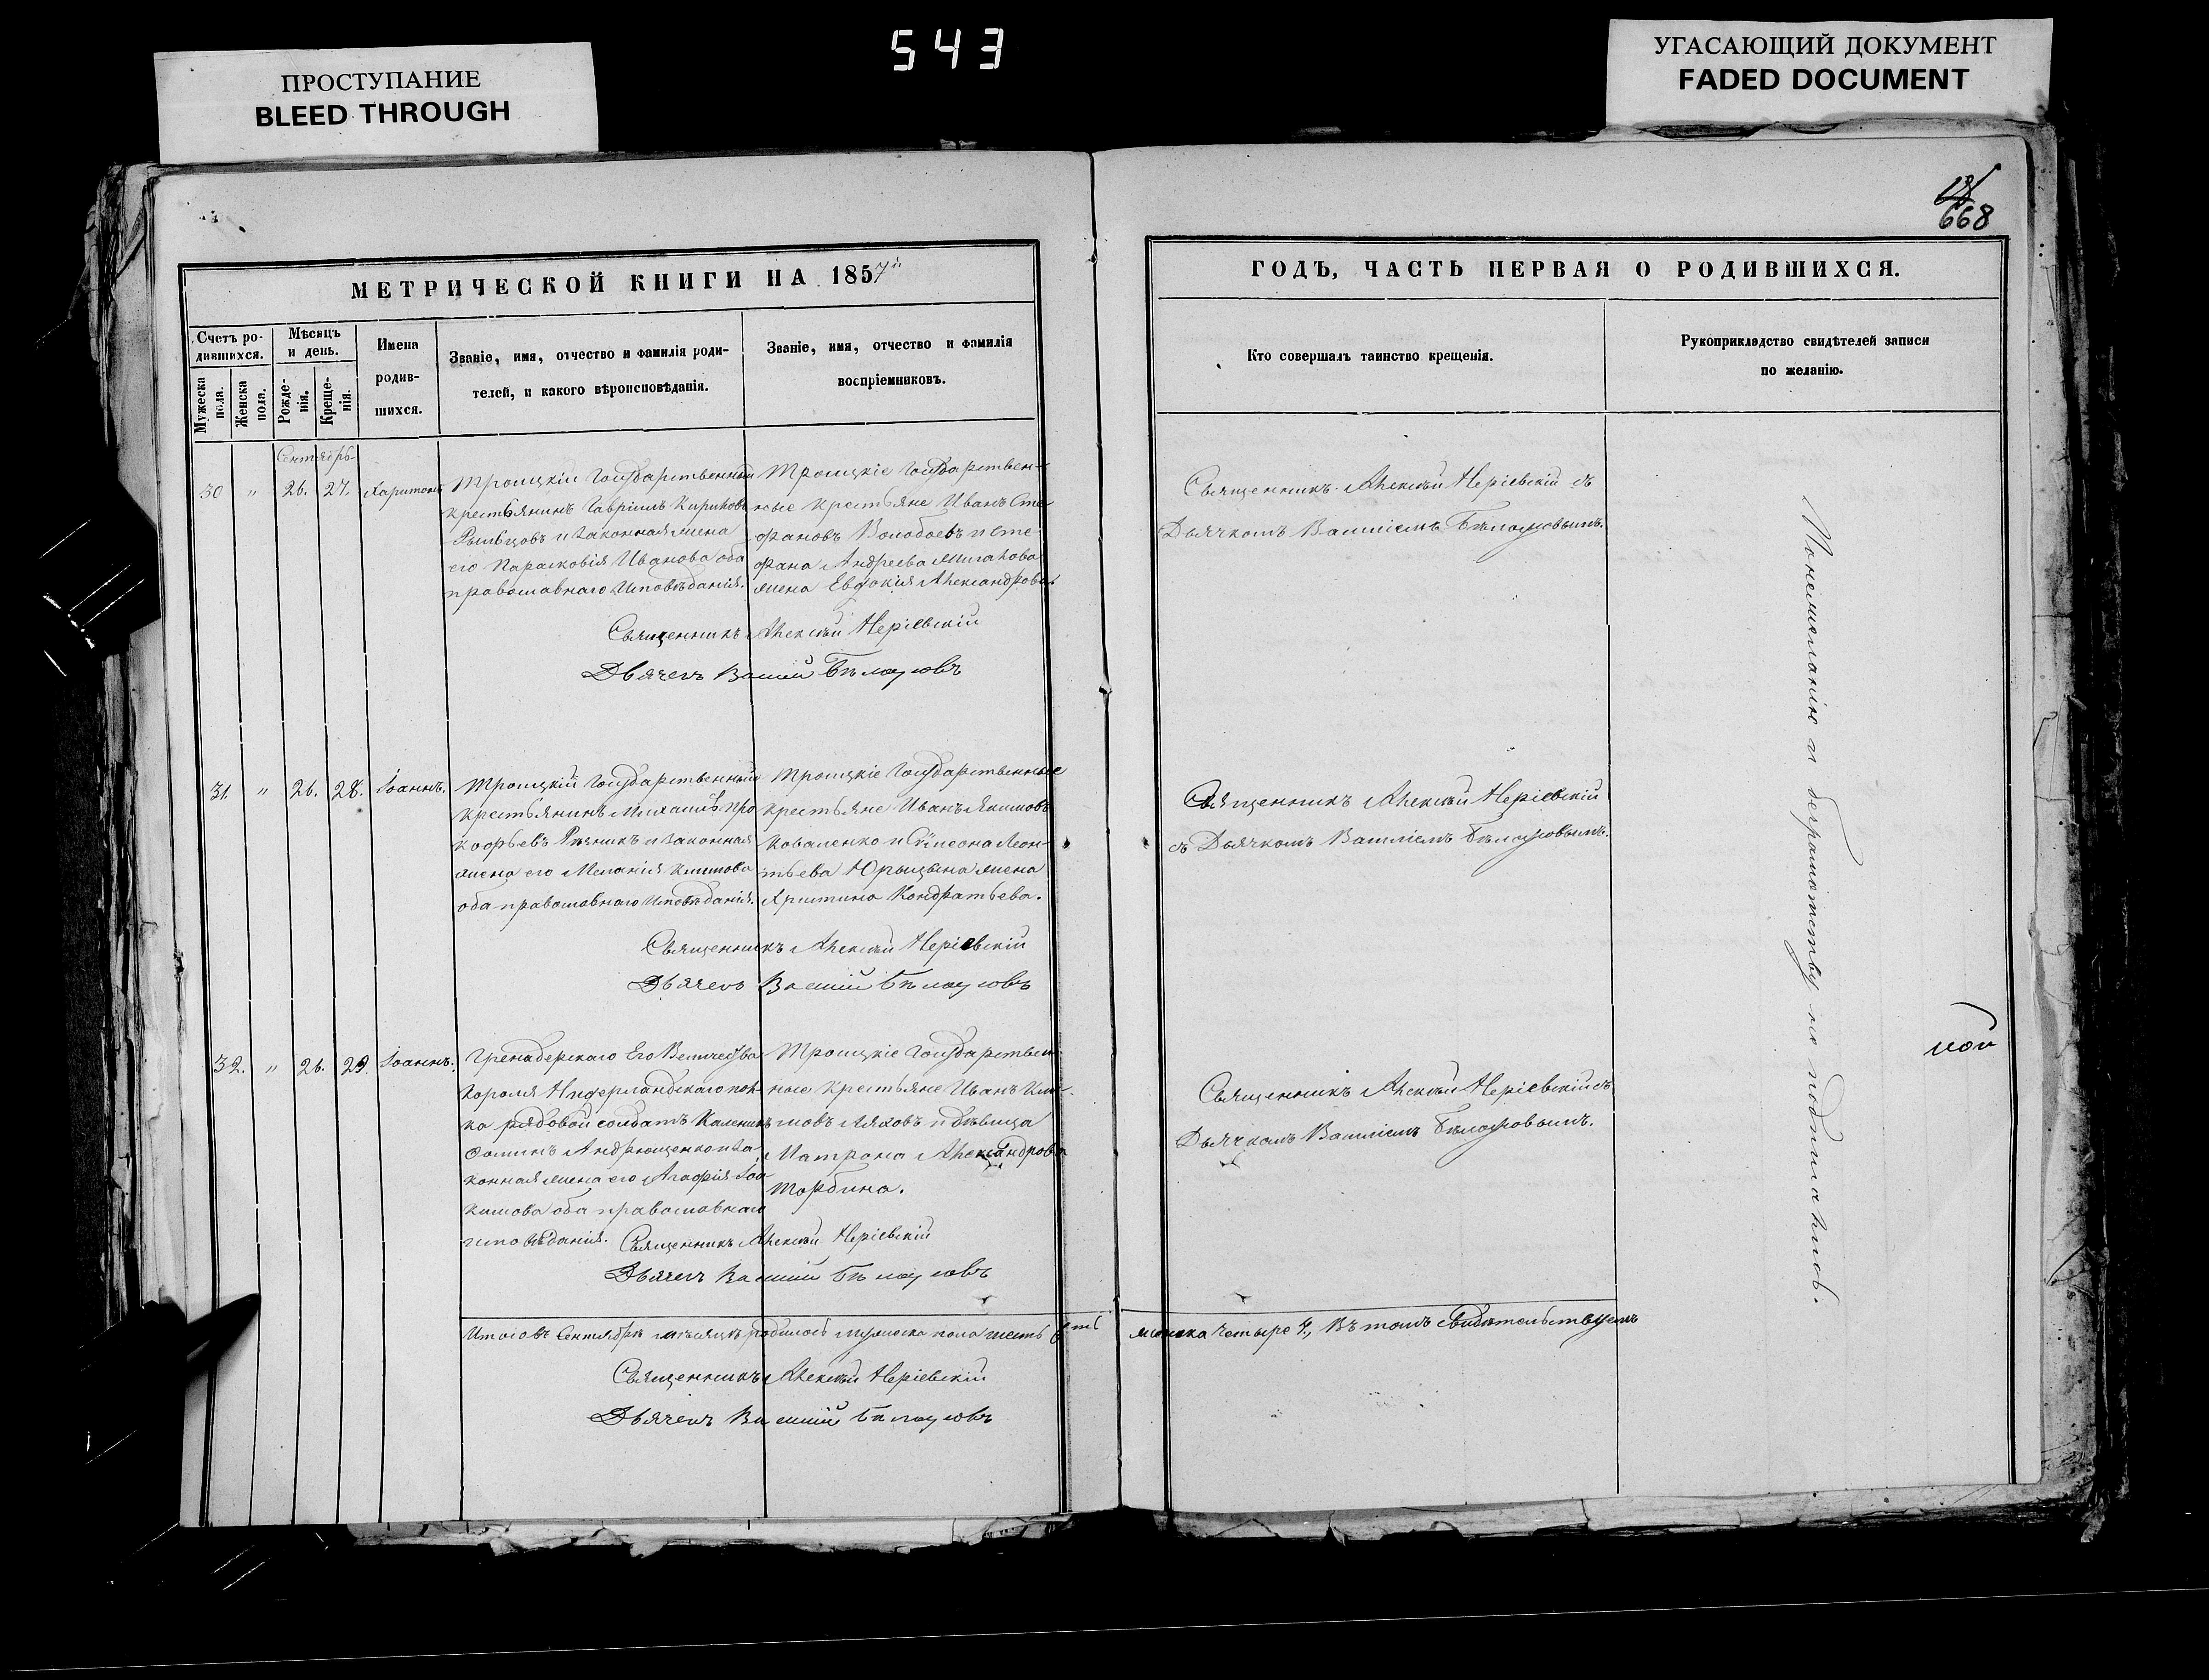 543
ПРОСТУПАНИЕ
BLEED THROUGH
УГАСАЮЩИЙ ДОКУМЕНТ
FADED DOCUMENT
668
МЕТРИЧЕСКОЙ КНИГИ НА 1857й
ГОДЪ, ЧАСТЬ ПЕРВАЯ О РОДИВШИХСЯ.
Счетъ ро-
дившихся.
Мужеска пола.
Женска пола.
Мѣсяцъ
и день.
Рожде-
нія.
Креще-
нія.
Имена
родив-
шихся.
Званіе, имя, отчество и фамилія роди-
телей, и какого вѣроисповѣданія.
Званіе, имя, отчество и фамилія
воспріемниковъ.
Кто совершалъ таинство крещенія.
Рукоприкладство свидѣтелей записи
по желанію.
Сентябрь
30 " 26. 27. Харитонъ
Троицкій Государственный
крестьянинъ Гавріилъ Кириловъ
и законная жена
его Парасковія Иванова оба
православнаго исповѣданія.
Троицкіе Государствен-
ные крестьяне Иванъ Сте-
фановъ Волобоевъ и Сте-
фана Андреева
жена Евдокія Александрова
Священникъ Алексѣй Неріевскій съ
Дьячкомъ Василіемъ Бѣлоусовымъ.
Священникъ Алексѣй Неріевскій
Дьячекъ Василій Бѣлоусовъ
31. " 26. 28. Іоаннъ.
Троицкій Государственный
крестьянинъ Михаилъ Про-
кофьевъ Рѣзникъ и законная
жена его Меланія Климова
оба православнаго исповѣданія.
Троицкіе Государственные
крестьяне Иванъ Якимовъ
Коваленко и Симеона Леон-
тьева Юрицына жена
Христина Кондратьева.
Священникъ Алексѣй Неріевскій
съ Дьячкомъ Василіемъ Бѣлоусовымъ.
Священникъ Алексѣй Неріевскій
Дьячекъ Василій Бѣлоусовъ
32. " 26. 29. Іоаннъ.
Гренадерскаго Его Величества
Короля Нидерландскаго пол-
ка рядовой солдатъ Калиникъ
Фоминъ Андрющенко и за-
конная жена его Агафія Іоа-
кимова оба православнаго
исповѣданія.
Троицкіе Государствен-
ные крестьяне Иванъ Кли-
мовъ Ляховъ и дѣвица
Матрона Александрова
Торбина.
Священникъ Алексѣй Неріевскій съ
Дьячкомъ Василіемъ Бѣлоусовымъ.
Священникъ Алексѣй Неріевскій
Дьячекъ Василій Бѣлоусовъ
Итого въ Сентябрѣ мѣсяцѣ родилось мужеска пола шесть 6ть
женска четыре 4, въ томъ свидѣтельствуемъ
Священникъ Алексѣй Неріевскій
Дьячекъ Василій Бѣлоусовъ
Понежеланію и безграмотству не подписались.